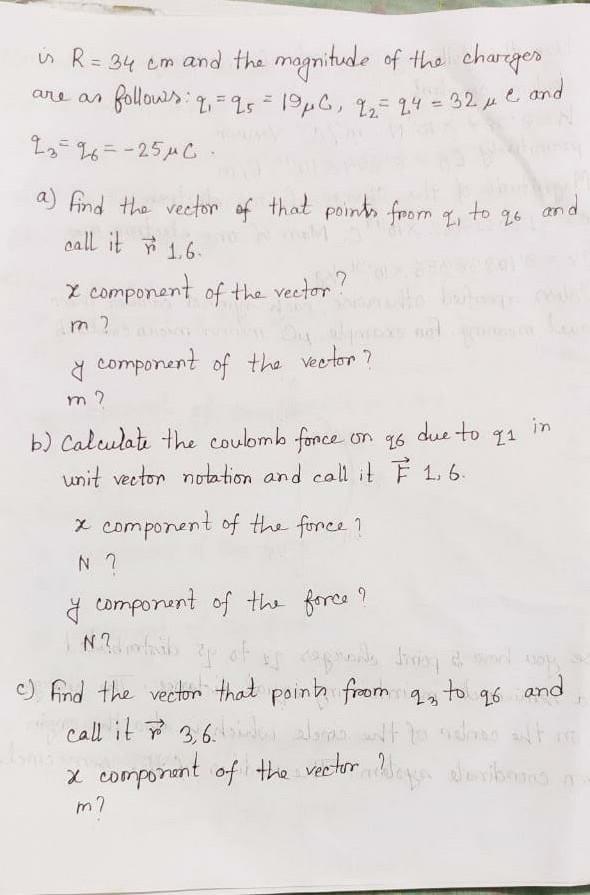 is R = 34 cm and the magnitude of the charges
are as follows: q₁ = q₅ = 19μC, q₂ = q4 = 32 μ C and
q₃ = q₆ = -25μC .
a) find the vector of that points from q₁ to q₆ and
call it r⃗ 1,6.
x component of the vector?
m ?
y component of the vector ?
m ?
b) Calculate the coulomb force on q6 due to q1 in
unit vector notation and call it F⃗ 1,6.
x component of the force ?
N ?
y component of the force ?
N ?
c) find the vector that points from q₃ to q6 and
call it r⃗ 3,6.
x component of the vector ?
m ?